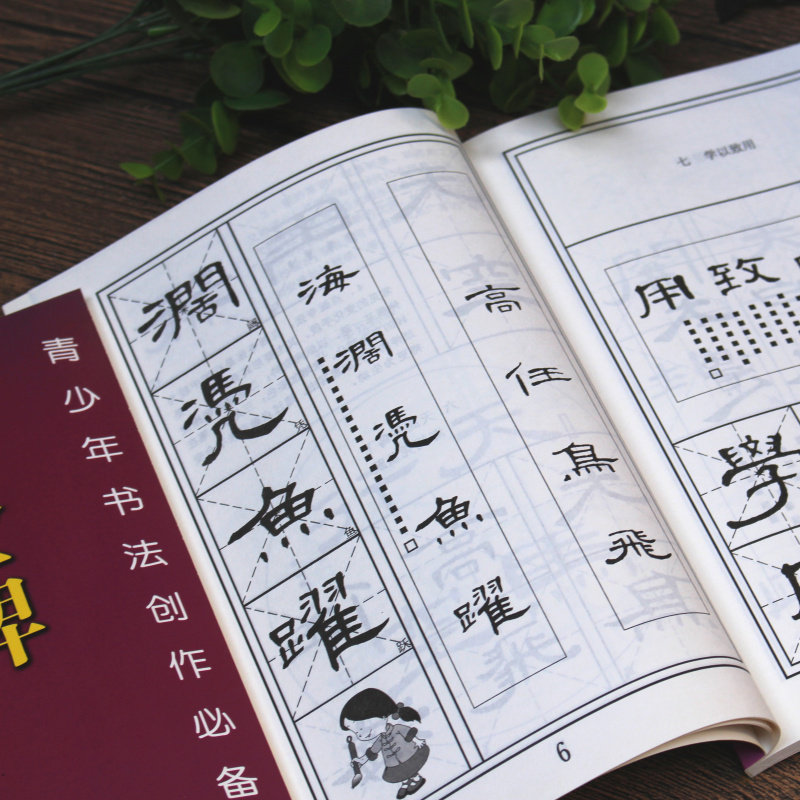 青少年书法创作必备
濶憑魚躍
鱼
跃
海濶憑魚躍
高任鳥飛
6
七 学以致用
用致
學